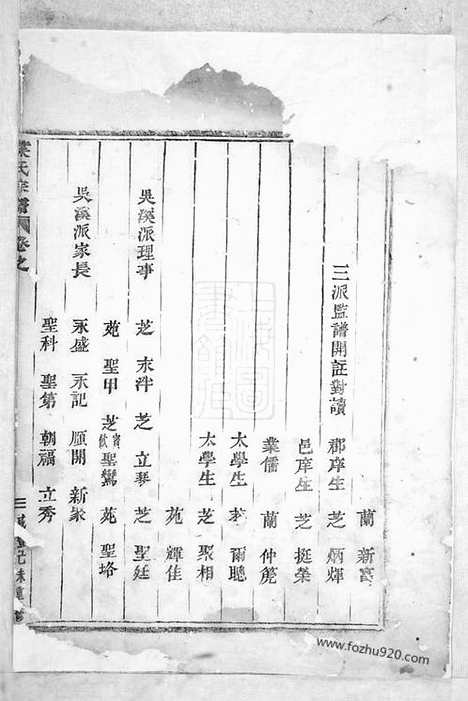 蘭 新
三派監譜開註對讀 郡庠生 芝 炳輝
邑庠生 芝 挺榮
業儒 蘭 仲篪
太學生 爾聰
太學生 芝 聚相
苑 輝佳
吳溪派理事 芝 永泮 芝 立琴 芝 聖廷
苑 聖甲 芝 聖鸞 苑 聖垎
吳溪派家長 永盛 永記 順開 新
聖科 聖第 朝福 立秀
氏 譜 卷之
www.fozhu920.com